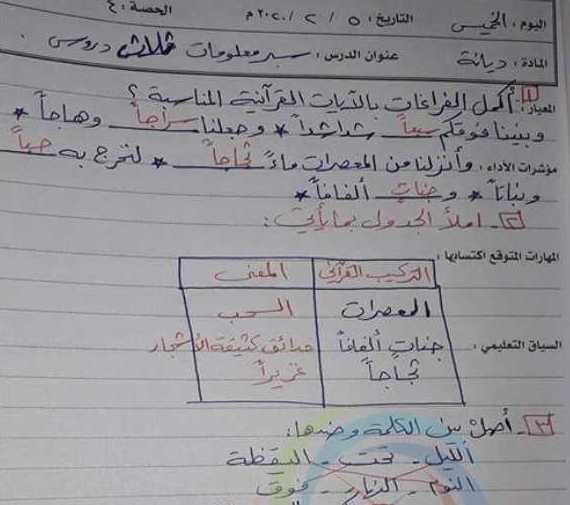 اليوم: الخميس التاريخ: ٥ / ٢ / ٢٠٢٠م الحصة: ٤
المادة: ديانة عنوان الدرس: سبر معلومات ثلاث دروس.
المعيار: ١ أكمل الفراغات بالآيات القرآنية المناسبة؟
وبنينا فوقكم سبعاً شداداً * وجعلنا سراجاً وهاجاً *
مؤشرات الأداء: وأنزلنا من المعصرات ماءً ثجاجاً * لنخرج به حباً
ونباتاً * وجناتٍ ألفافاً *
٢- املأ الجدول بما يأتي:
المهارات المتوقع اكتسابها:
التركيب القرآني المعنى
المعصرات السحب
السياق التعليمي: جناتٍ ألفافاً حدائق كثيفة الأشجار
ثجاجاً غزيراً
٣- أصل بين الكلمة وضدها:
الليل - تحت - اليقظة
النوم - النهار - فوق